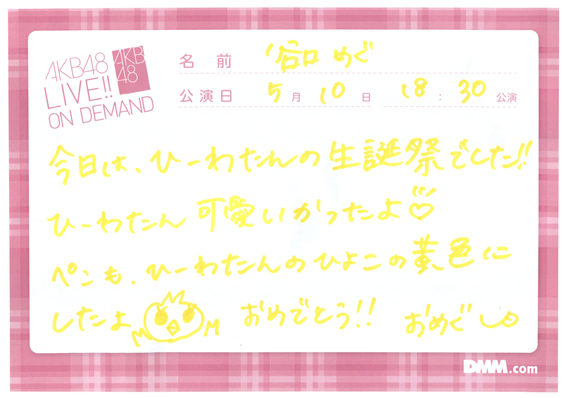 AKB48
LIVE!!
ON DEMAND
AKB
48
名前 谷口 めぐ
公演日 5月10日 18:30公演
今日は、ひーわたんの生誕祭でした!!
ひーわたん可愛いかったよ♡
ペンも、ひーわたんのひよこの黄色に
したよ おめでとう!! おめぐ
DMM.com